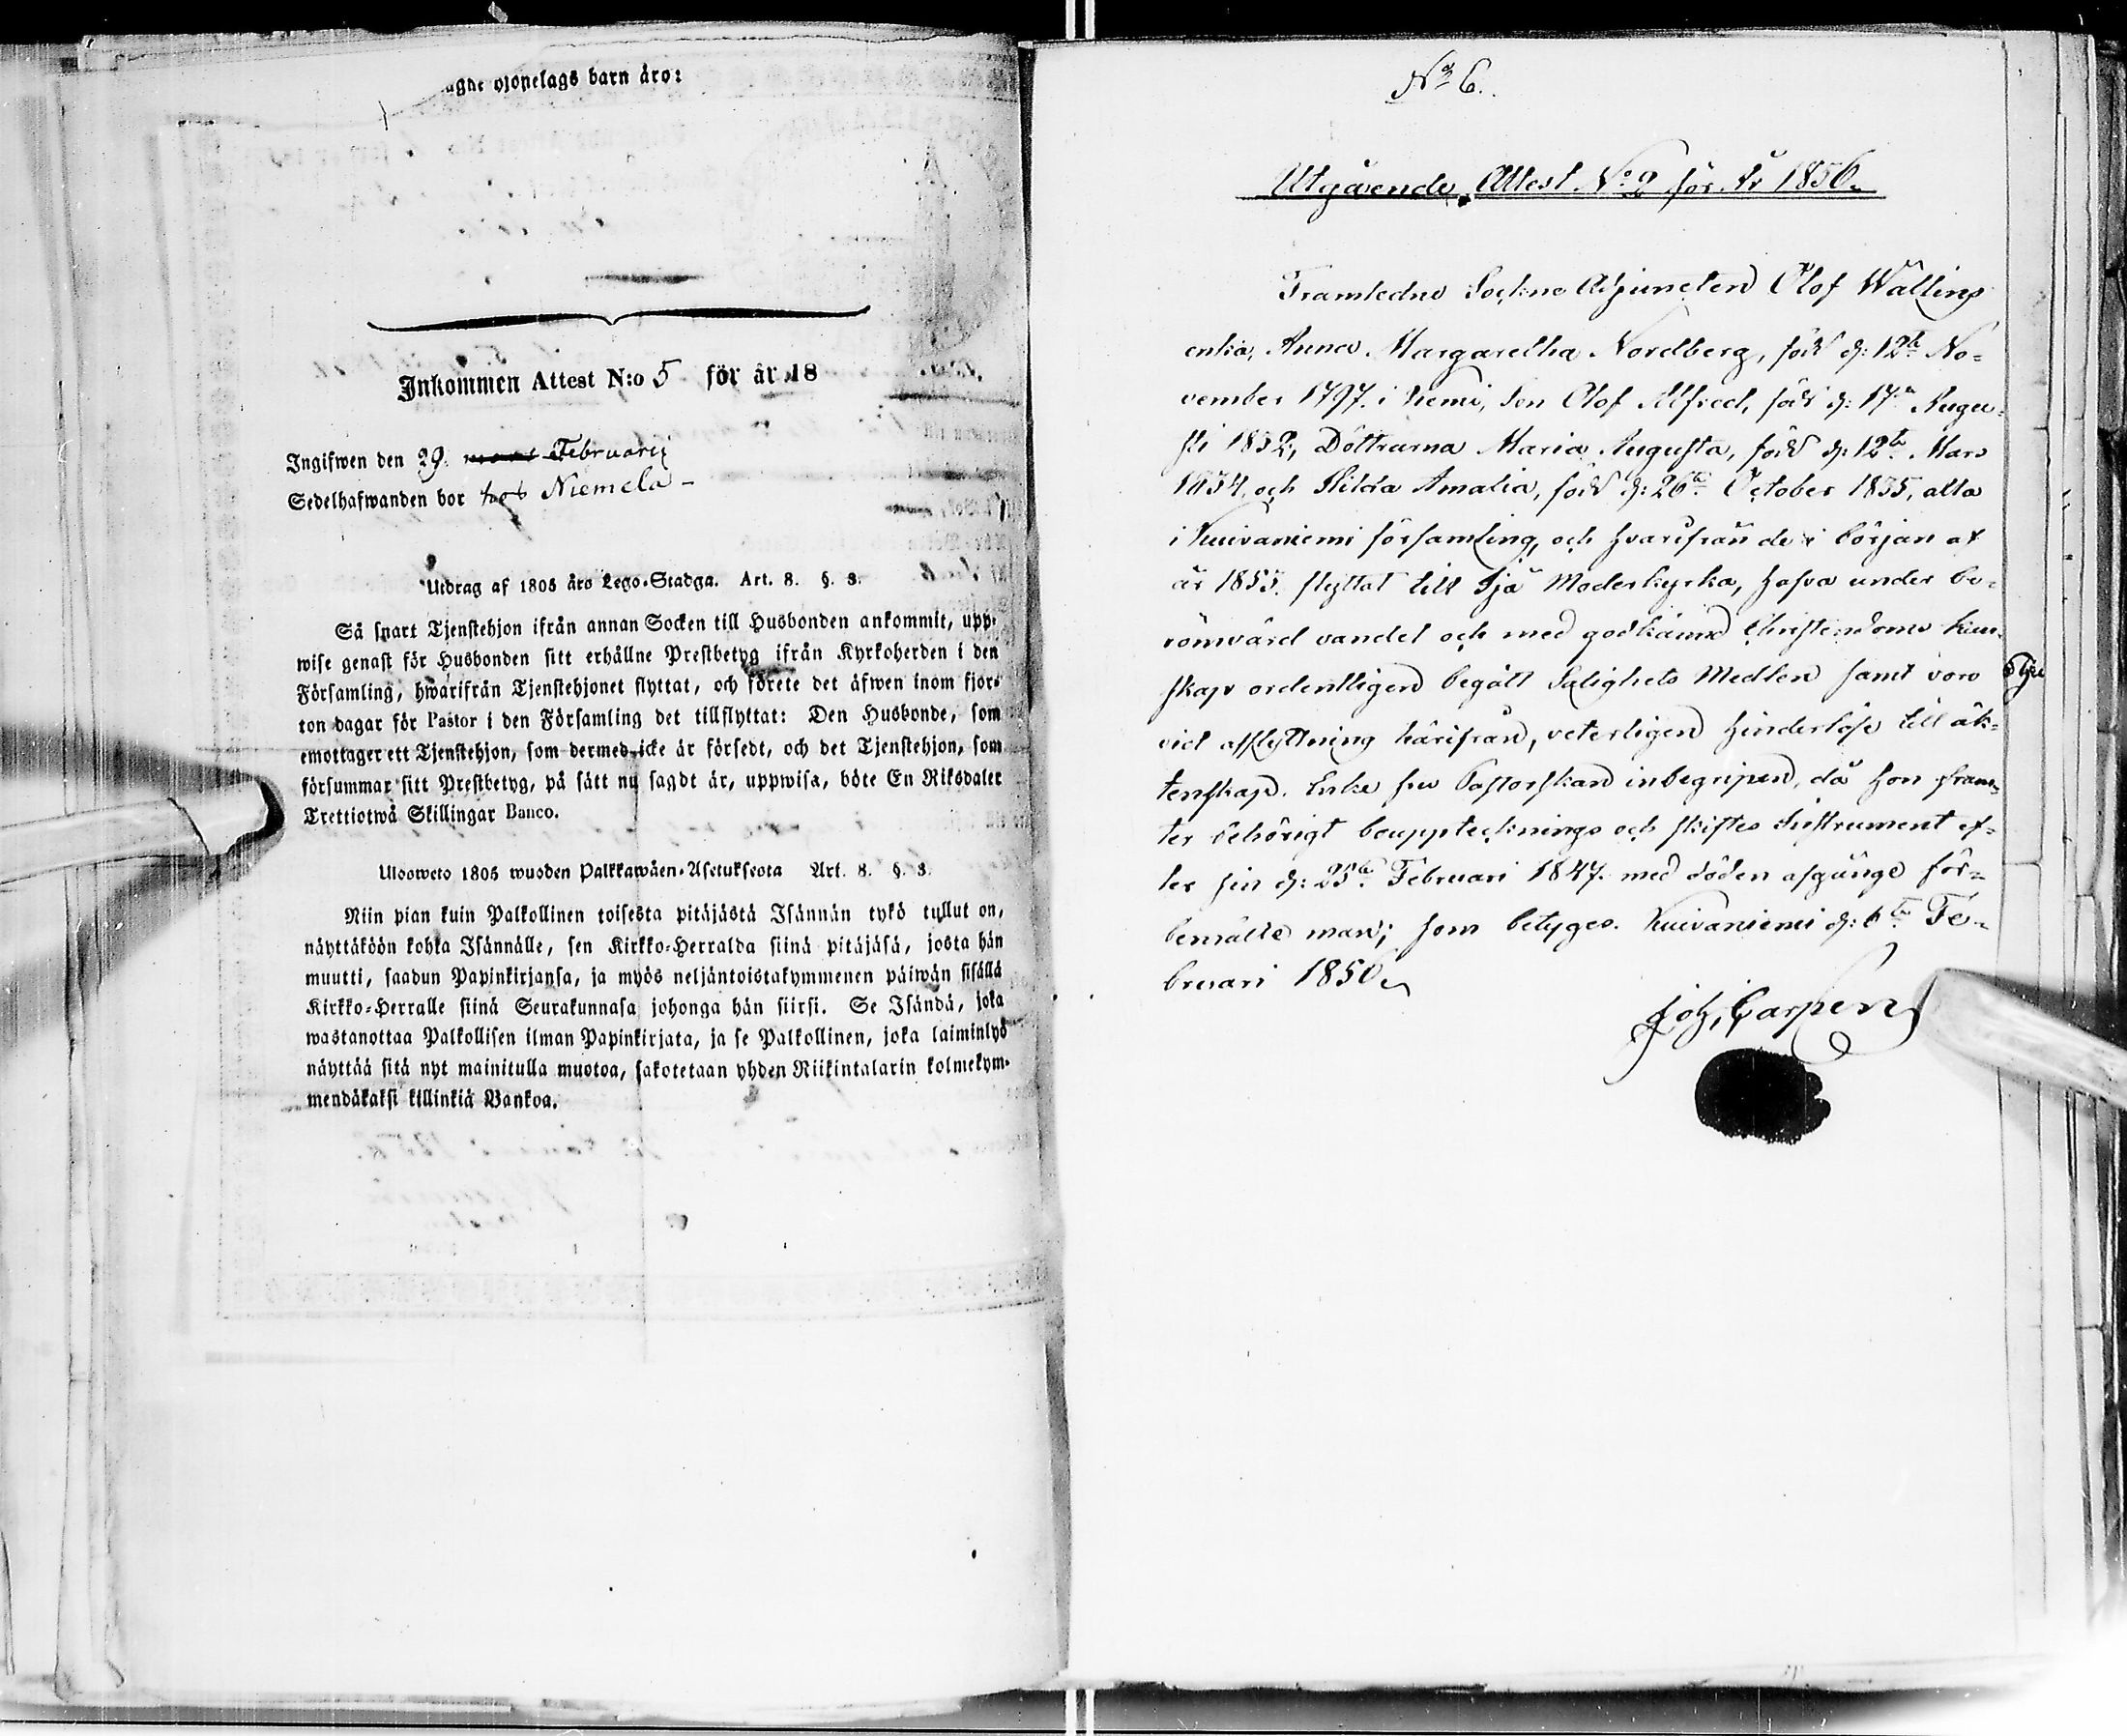 agne hjonelags barn äro:
Inkommen Attest N:o 5 för år 18
Ingifwen den 29. Februarii
Sedelhafwanden bor hos Niemelä -
Utdrag af 1805 års Lego-Stadga. Art. 8. §. 8.
Så snart Tjenstehjon ifrån annan Socken till Husbonden ankommit, upp-
wise genast för Husbonden sitt erhållne Prestbetyg ifrån Kyrkoherden i den
Församling, hwarifrån Tjenstehjonet flyttat, och förete det äfwen inom fjor-
ton dagar för Pastor i den Församling det tillflyttat: Den Husbonde, som
emottager ett Tjenstehjon, som dermed icke är försedt, och det Tjenstehjon, som
försummar sitt Prestbetyg, på sätt nu sagdt är, uppwisa, böte En Riksdaler
Trettiotwå Skillingar Banco.
Uloosweto 1805 wuoden Palkkawäen-Asetuksesta Art. 8. §. 8.
Niin pian kuin Palkollinen toisesta pitäjästä Isännän tykö tullut on,
näyttäköön kohta Isännälle, sen Kirkko-Herralda siinä pitäjäsä, josta hän
muutti, saadun Papinkirjansa, ja myös neljäntoistakymmenen päiwän sisällä
Kirkko-Herralle siinä Seurakunnasa johonga hän siirsi. Se Isändä, joka
wastanottaa Palkollisen ilman Papinkirjata, ja se Palkollinen, joka laiminlyö
näyttää sitä nyt mainitulla muotoa, sakotetaan yhden Riikintalarin kolmekym-
mendäkaksi killinkiä Bankoa.
No 6.
Utgående Attest No 9 för år 1856.
Framledne Sockne Adjuncten Olof Wallins
enka, Anna Margaretha Nordberg, född d: 12te No=
vember 1797. i Kemi, Son Olof Alfred, född d: 17de Augu=
sti 1832, Döttrarna Maria Augusta, född d: 12te Mars
1834, och Hilda Amalia, född d: 26te October 1835, alla
i Kuivaniemi församling, och hvarifrån de i början af
år 1855. flyttat till Ijå Moderkyrka, hafva under be=
römvärd vandel och med godkänd Christendoms kun=
skap ordentligen begått Salighets Medlen samt voro
vid afflyttning härifrån, veterligen hinderlöse till äk=
tenskap. Enke fru Pastorskan inbegripen, då hon fram=
ter behörigt bouppteknings och skiftes Instrument ef=
ter sin d: 25te Februari 1847. med döden afgångne för=
bemälte man; som betyges. Kuivaniemi d: 6te Fe=
bruari 1856.
Joh, Carpen